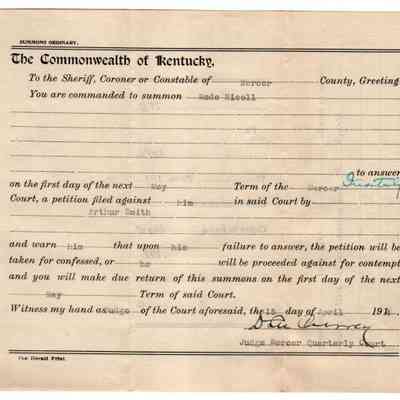 SUMMONS ORDINARY.
The Commonwealth of Kentucky,
To the Sheriff, Coroner or Constable of Mercer County, Greeting
You are commanded to summon Wade Nicoll
to answer
on the first day of the next May Term of the Mercer Quarterly
Court, a petition filed against him in said Court by
Arthur Smith
and warn him that upon his failure to answer, the petition will be
taken for confessed, or he will be proceeded against for contempt
and you will make due return of this summons on the first day of the next
May Term of said Court.
Witness my hand as Judge of the Court aforesaid, the 15 day of April 191
Judge Mercer Quarterly Court
The Herald Print.